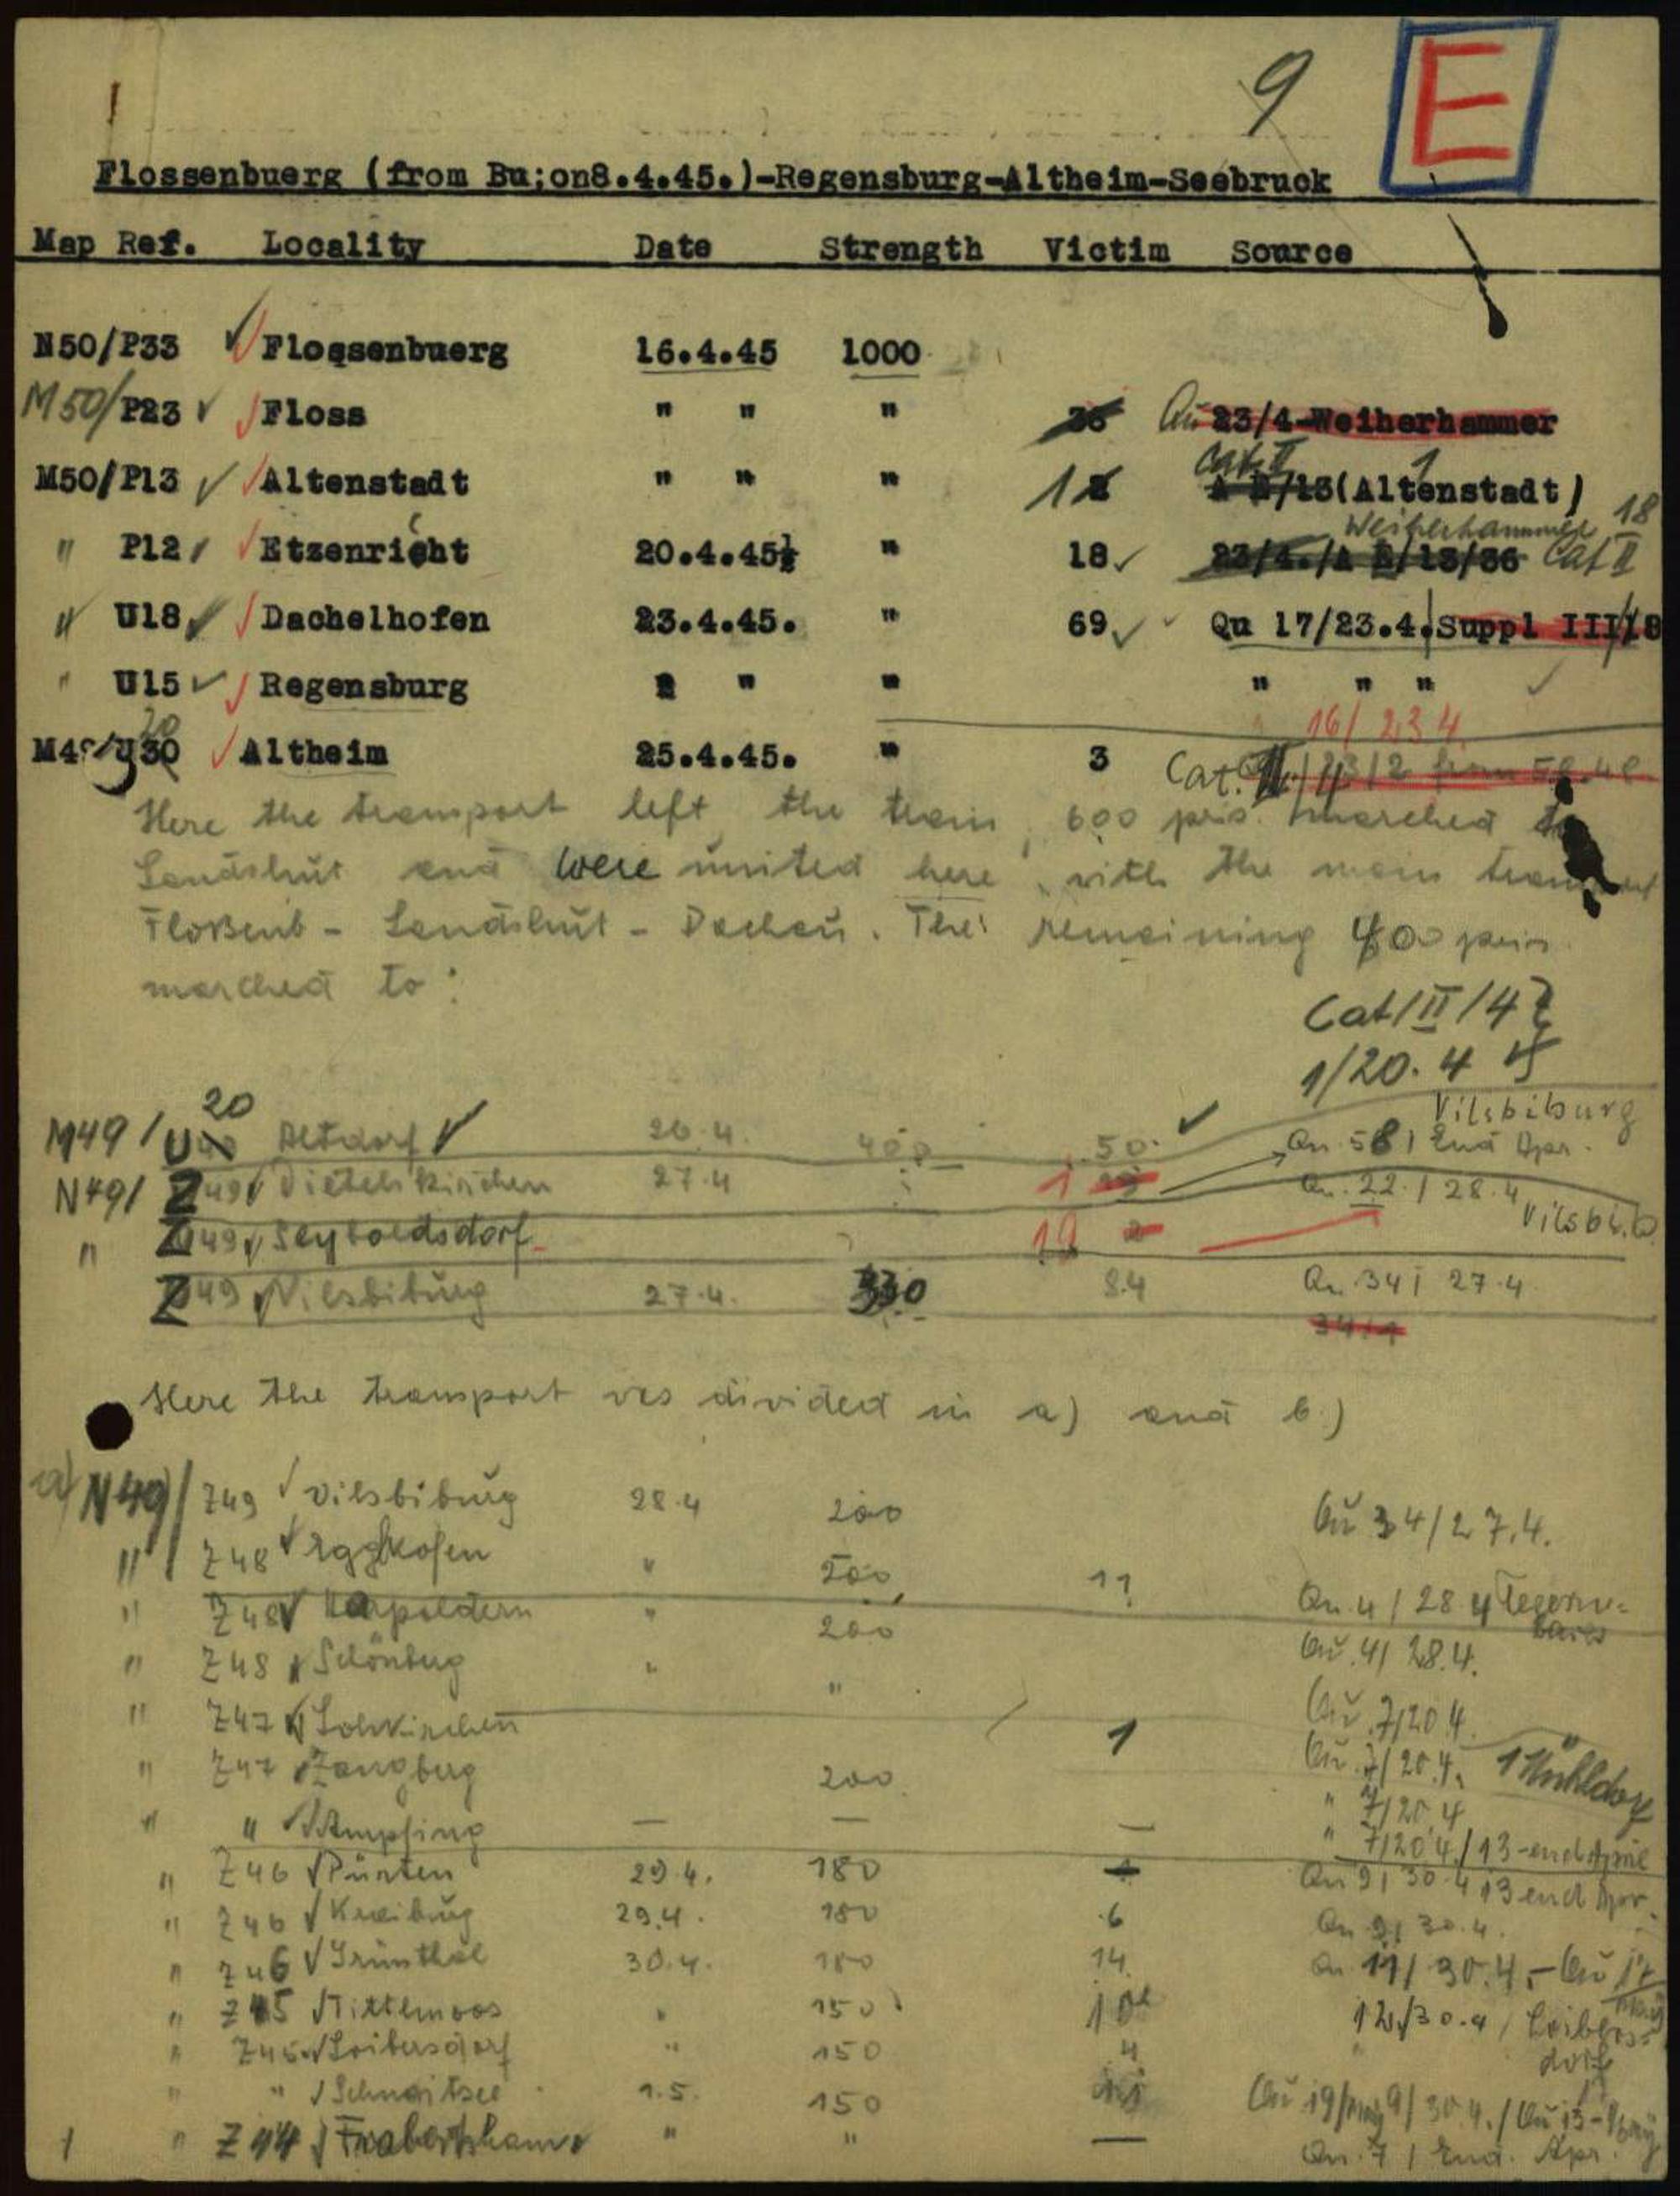 9 E
Flossenbuerg (from Bu;on8.4.45.)-Regensburg-Altheim-Seebruck
Map Ref. Locality Date Strength Victim Source
N50/P33 Flossenbuerg 16.4.45 1000
M50/P23 Floss " " " 23/4-Weiherhammer
M50/P13 Altenstadt " " " 1 Cat II 1 (Altenstadt)
Weiherhammer 18
" P12 Etzenricht 20.4.45 " 18 23/4./A E/13/36 Cat II
" U18 Dachelhofen 23.4.45. " 69 Qu 17/23.4. Suppl III/18
" U15 Regensburg " " " " " "
16/23 4.
M49/U30 20 Altheim 25.4.45. " 3 Cat. II
Here the transport left the train, 600 pris. marched to
Landshut and were united here with the main transport
Floßenb - Landshut - Dachau. The remaining 400 pris
marched to:
Cat/II/47
1/20.4 45
Vilsbiburg
M49/U 20 Altdorf 26.4. 400 50. Qu. 58 / End Apr.
N49/Z49 Dietelskirchen 27.4 1 Qu. 22. / 28.4 Vilsbib.
" Z49 Seyboldsdorf 19
Z49 Vilsbiburg 27.4. 330 84 Qu. 34 / 27.4
34/1
Here the transport ves divided in a) and b.)
a) N49/ Z49 Vilsbiburg 28.4 200 Qu 34/27.4.
" Z48 Eggkofen " 200 11 Qu. 4 / 28 4 Tegern-
" Z48 Harpoldern " 200 bach
" Z48 Schönberg " " Qu. 4/ 28.4.
" Z47 Lohkirchen Qu. 7/20 4.
" Z47 Zangberg 200 1 Qu. 7/20.4. 1 Mühldorf
" 7/20.4
" " Ampfing — — — " 7/20 4./13-end April
" Z46 Pürten 29.4. 180 Qu 9/ 30.4 13 end Apr.
" Z46 Kraiburg 29.4. 180 6 Qu 9/ 30.4.
" Z46 Grünthal 30.4. 180 14 Qu 11/ 30.4.- Qu 17 May
" Z45 Tittlmoos " 150 10 12/30.4 / Loibers-
" Z45 Loibersdorf " 150 4 dorf
" " Schnaitsee 1.5. 150 11 Qu 19/May 9/ 30 4./ Qu 13-May
" Z44 Frabertsham " " — Qu. 7 / End. Apr.